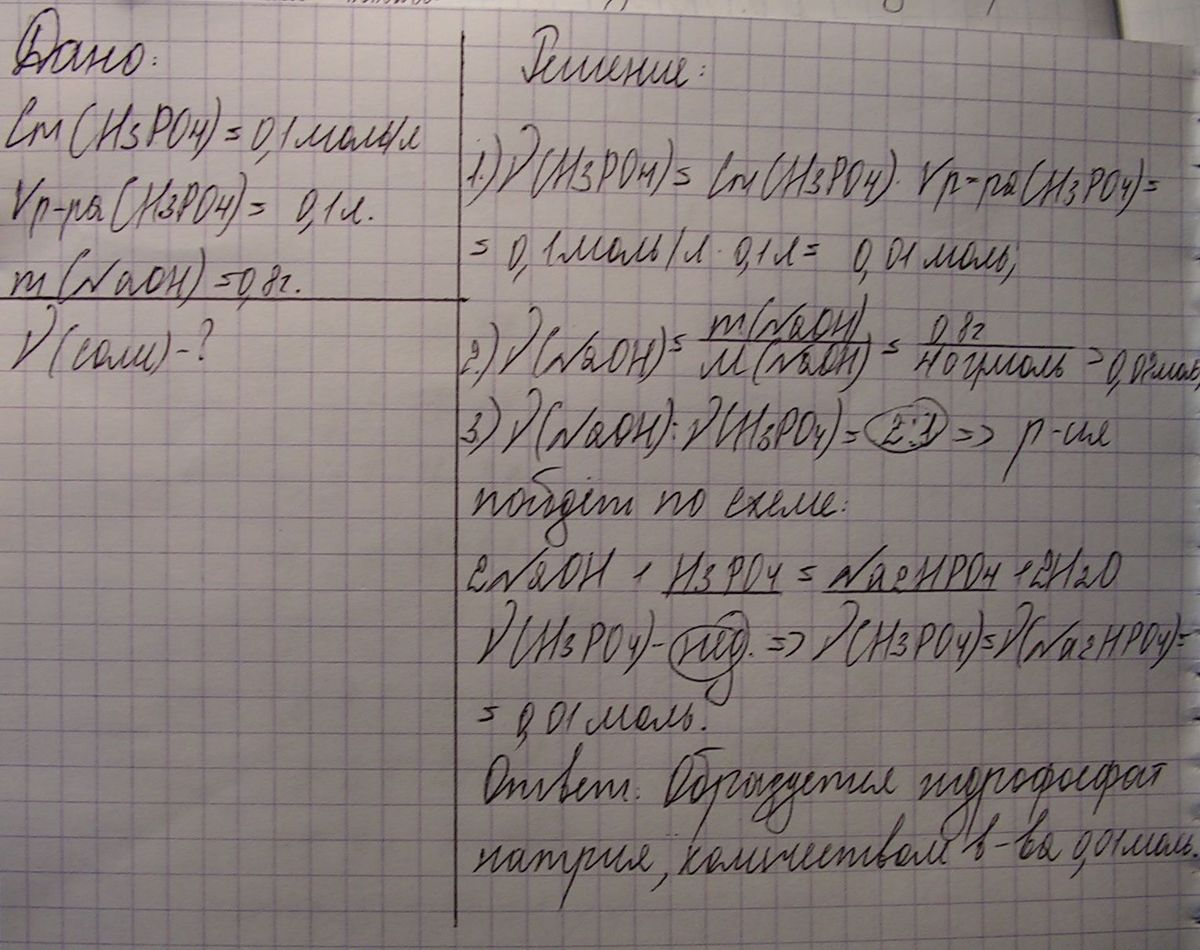 Дано:
Cm(H3PO4) = 0,1 моль/л
Vр-ра(H3PO4) = 0,1л.
m(NaOH) = 0,8г.
ν(соли) - ?
Решение:
1.) ν(H3PO4) = Cm(H3PO4) · Vр-ра(H3PO4) =
= 0,1 моль/л · 0,1л = 0,01 моль;
2) ν(NaOH) = m(NaOH) / M(NaOH) = 0,8г / 40г/моль = 0,02моль
3) ν(NaOH) : ν(H3PO4) = 2:1 => р-ция
пойдёт по схеме:
2NaOH + H3PO4 = Na2HPO4 + 2H2O
ν(H3PO4) - нед. => ν(H3PO4) = ν(Na2HPO4) =
= 0,01 моль.
Ответ: Образуется гидрофосфат
натрия, количеством в-ва 0,01моль.